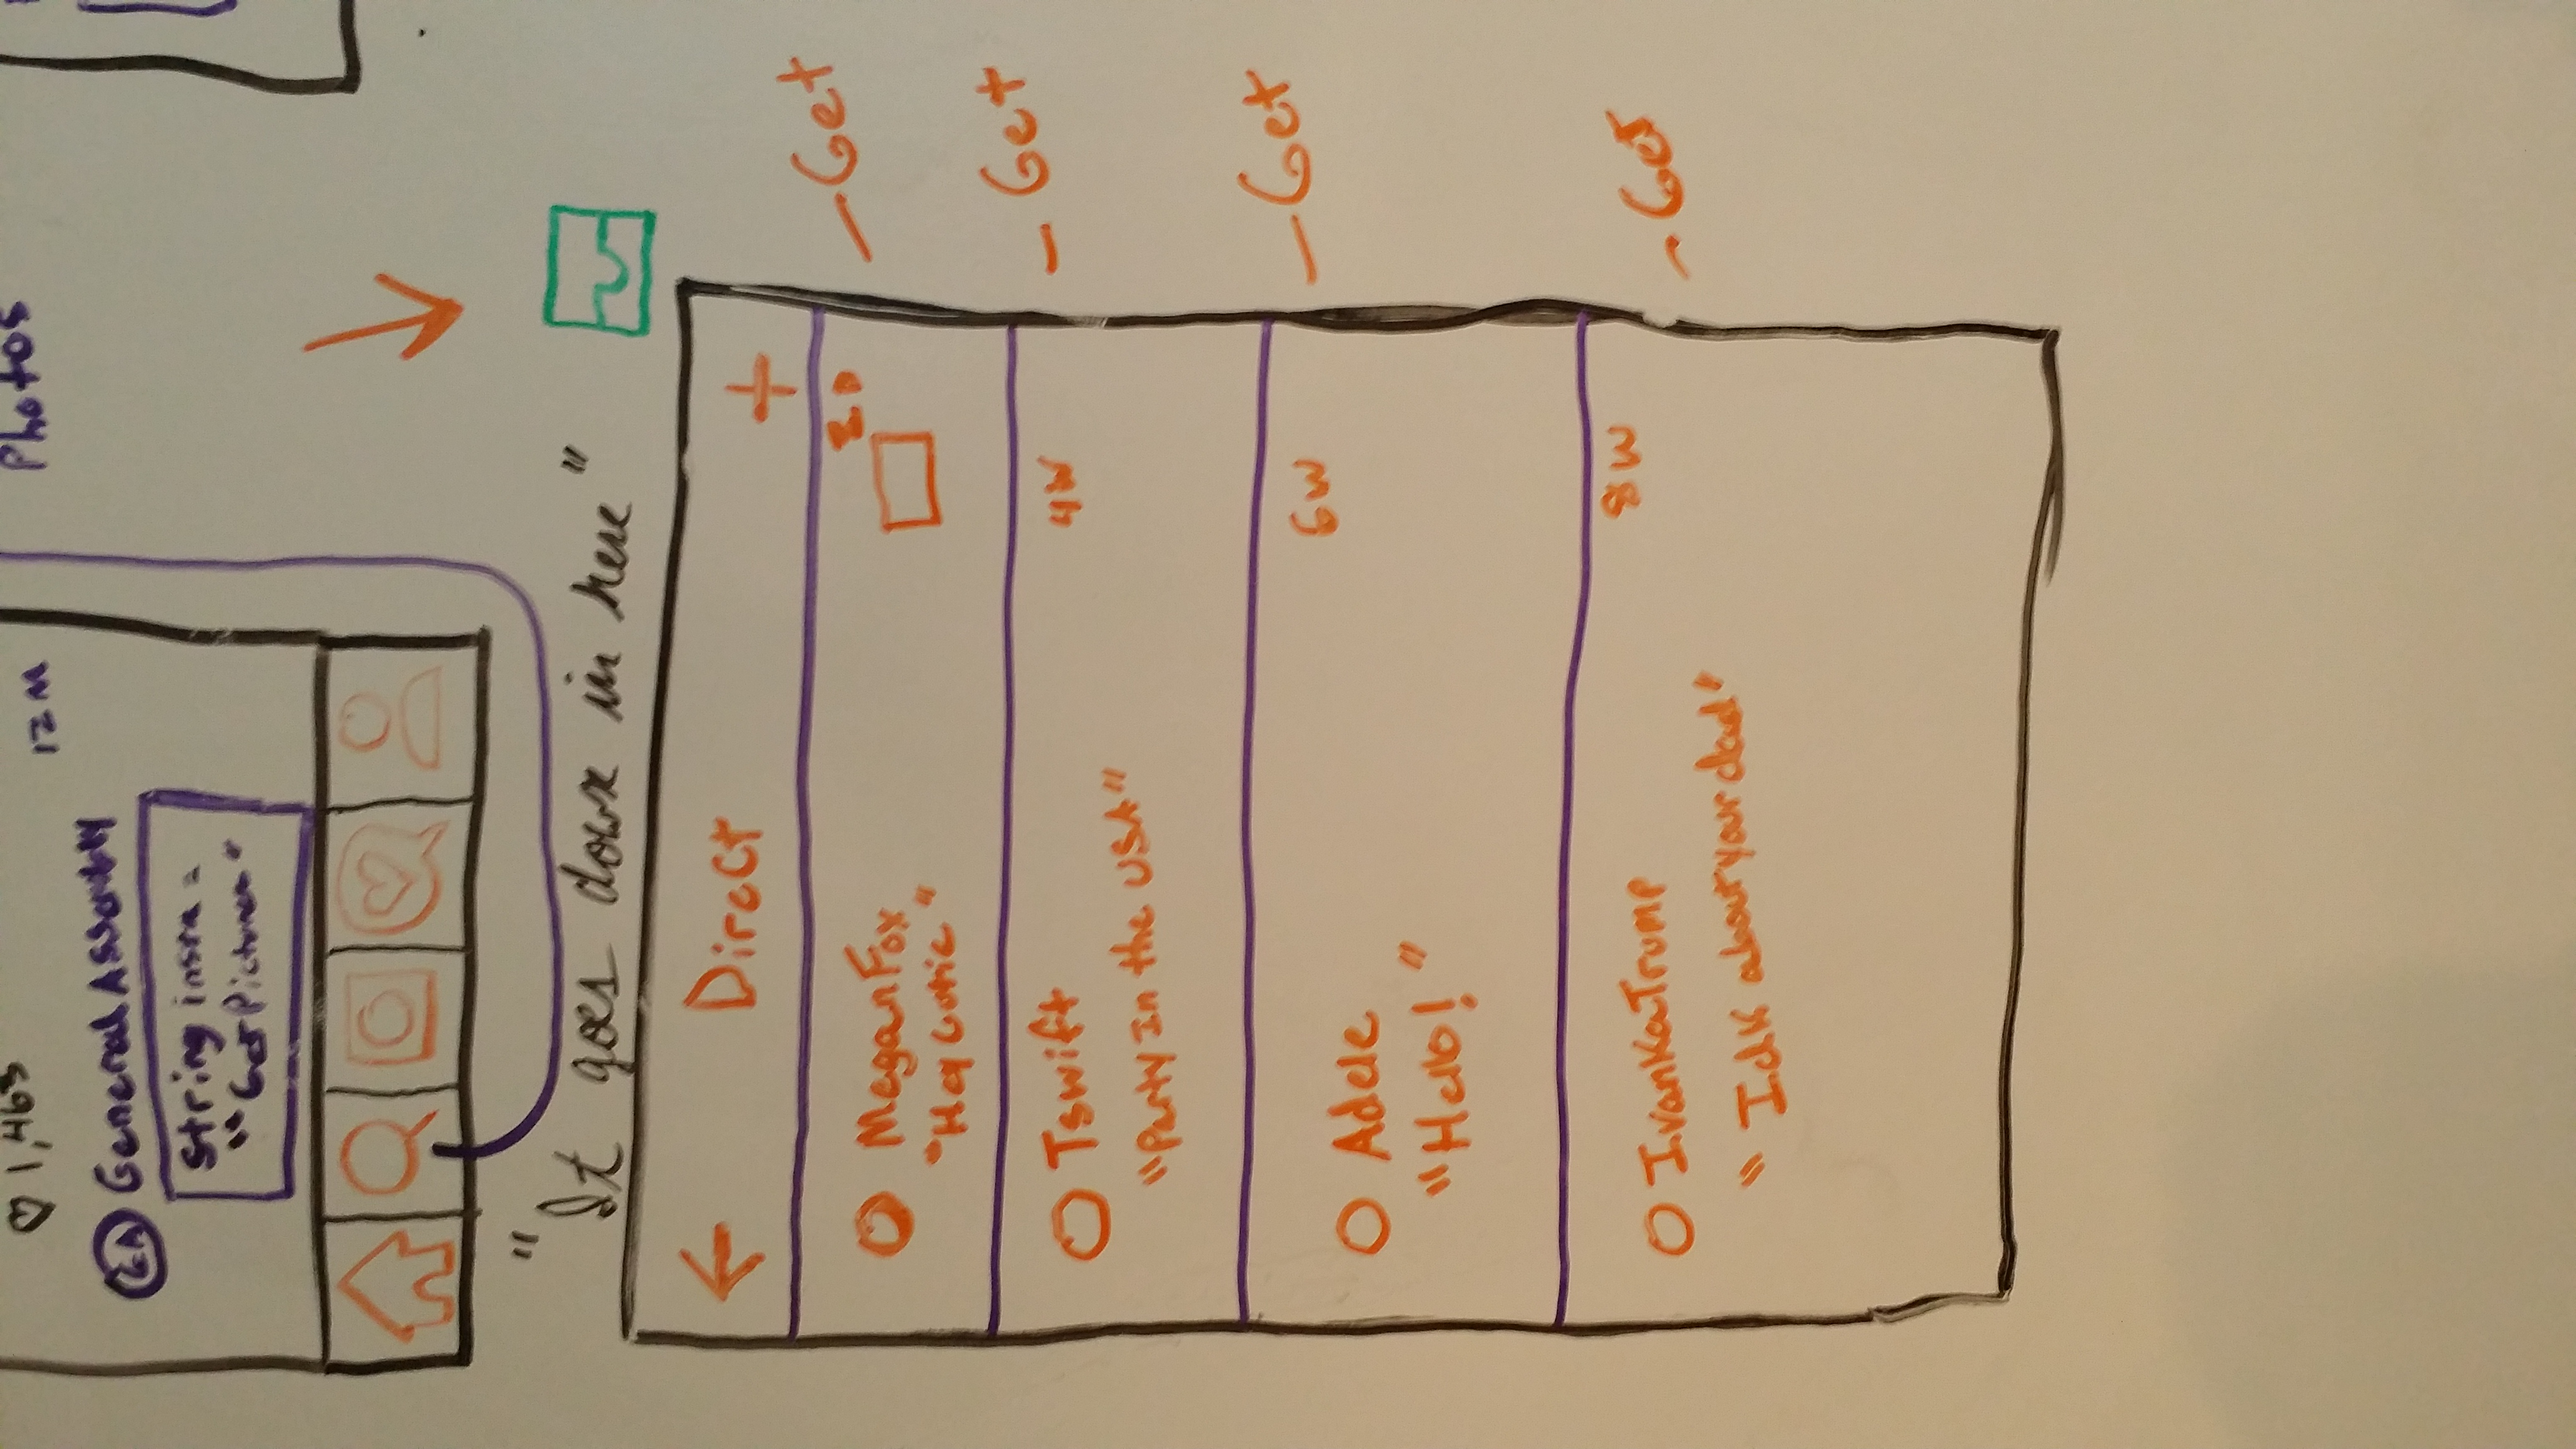 ♡ 1,463
12M
Photos
GA General Assembly
String insta =
"Get Pictures"
"It goes down in here"
← Direct +
- Get
MeganFox
"Hey Cutie"
Tswift 4W
- Get
"Party In the USA"
6W
- Get
Adele
"Hello!"
8W
- Get
IvankaTrump
"Idk about your dad"